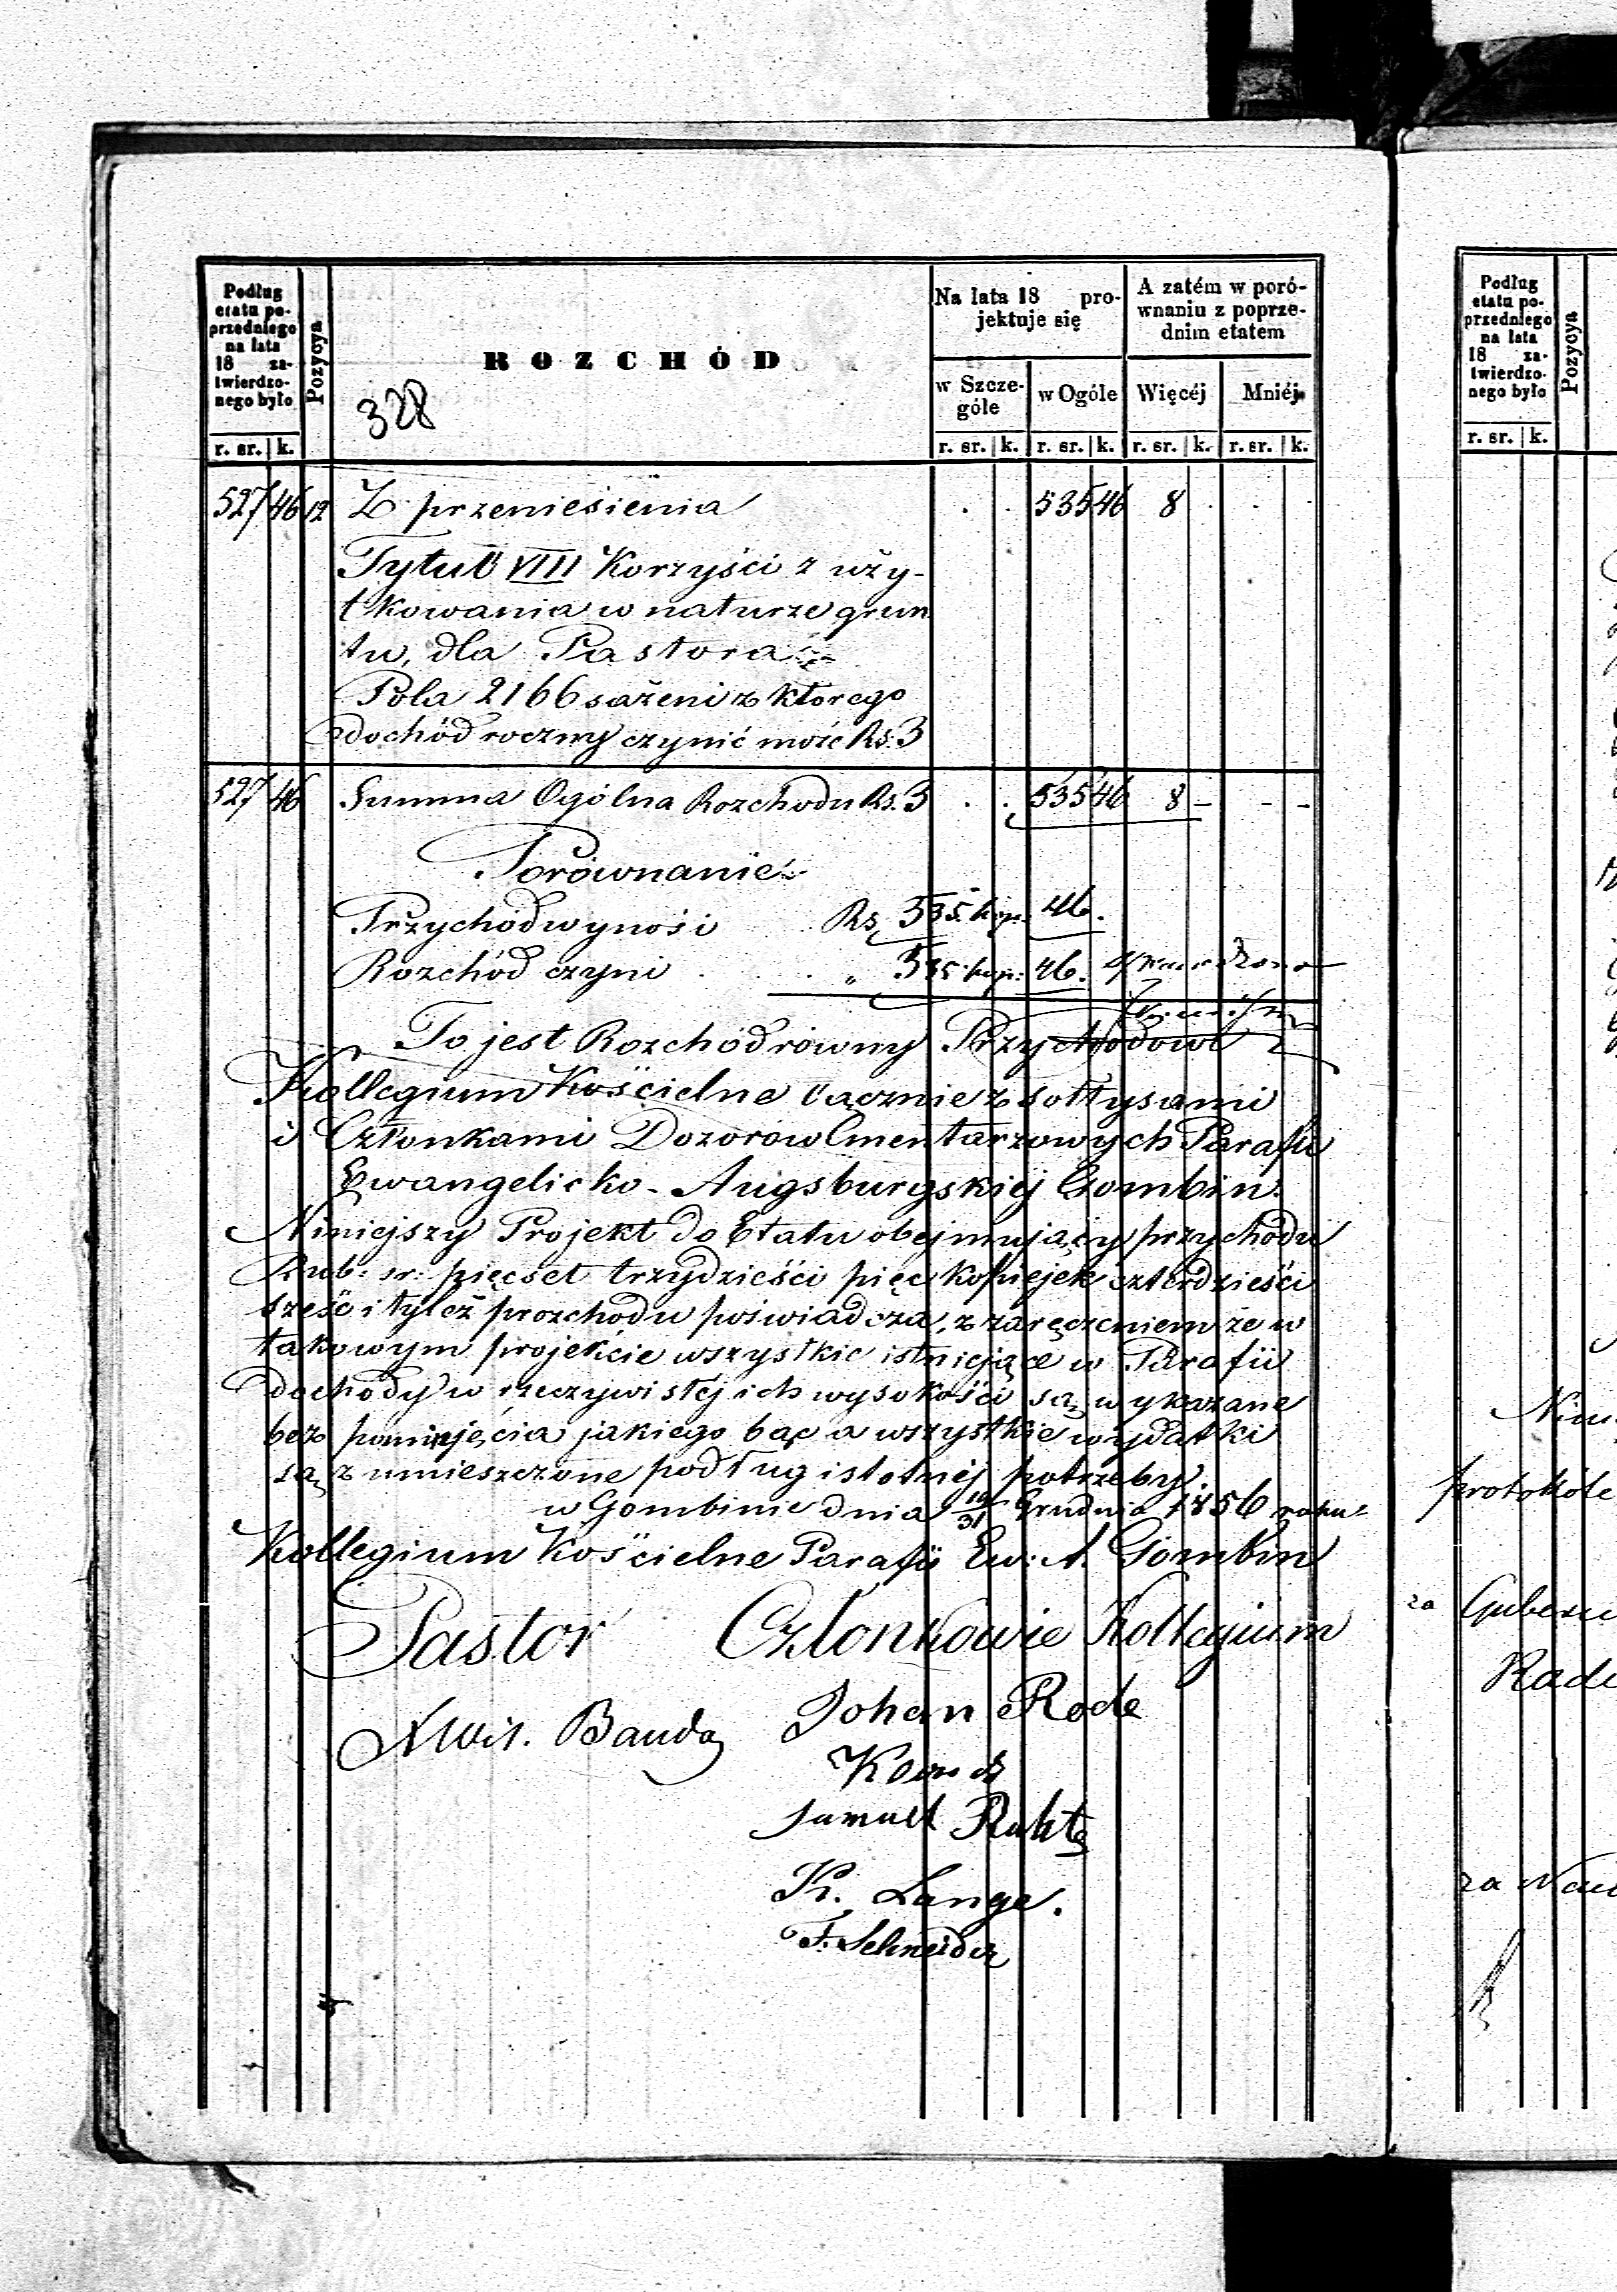 Podług
etatu po-
przedniego
na lata
18 za-
twierdzo-
nego było
r. sr. k.
Pozycya
ROZCHÓD
328
Na lata 18 pro-
jektuje się
w Szcze-
góle
w Ogóle
r. sr. k. r. sr. k.
A zatém w poró-
wnaniu z poprze-
dnim etatem
Więcéj Mniéj
r. sr. k. r. sr. k.
527 46 12 Z przeniesienia . . 535 46 8 . . .
Tytuł VIII Korzyści z uży-
tkowania w naturze grun
tu, dla Pastora
Pola 2166 sażeni z którego
dochód roczny czynić może Rs. 3
527 46 Summa Ogólna Rozchodu Rs. 3 . . 535 46 8 - - -
Porównanie
Przychód wynosi Rs. 535. kop. 46.
Rozchód czyni " 535. kop: 46.
To jest Rozchód równy Przychodowi
Kollegium Kościelne łącznie z sołtysami
i Członkami Dozorow Cmentarzowych Parafii
Ewangelicko-Augsburgskiej Gombin.
Niniejszy Projekt do Etatu obejmujący przychodu
Rub: sr: pięcset trzydzieści pięc kopiejek czterdzieści
sześć i tyleż rozchodu poświadcza, z zaręczeniem że w
takowym projekcie wszystkie istniejące w Parafii
dochody w rzeczywistéj ich wysokości są wykazane
bez pominięcia jakiego bąc a wszystkie wydatki
są z umieszczone podług istotnéj potrzeby.
w Gombinie dnia 19/31 Grudnia 1856 roku
Kollegium Kościelne Parafii Ew: A. Gombin
Pastor Członkowie Kollegium
Alois. Bando Johan Rode
Samuel
K. Lange.
F. Schneider
Podług
etatu po-
przedniego
na lata
18 za-
twierdzo-
nego było
r. sr. k.
Pozycya
protokóle
za
za